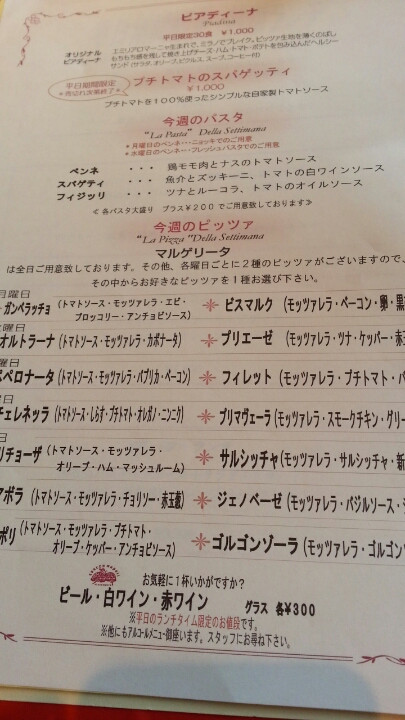 ピアディーナ
Piadina
平日限定30食 ¥1,000
オリジナル
ピアディーナ
エミリアロマーニャ生まれで、ミラノでブレイク。ピッツァ生地を薄くのばし
もちもち感を残して焼き上げチーズ・ハム・トマト・ポテトを包み込んだヘルシー
サンド (サラダ、オリーブ、ピクルス、スープ、コーヒー付)
平日期間限定
*売切れ次第終了*
プチトマトのスパゲッティ
¥1,000
プチトマトを100%使ったシンプルな自家製トマトソース
今週のパスタ
"La Pasta" Della Settimana
*月曜日のペンネ・・・ニョッキでのご用意
*水曜日のペンネ・・・フレッシュパスタでのご用意
ペンネ ・・・ 鶏モモ肉とナスのトマトソース
スパゲティ ・・・ 魚介とズッキーニ、トマトの白ワインソース
フィジッリ ・・・ ツナとルーコラ、トマトのオイルソース
≪ 各パスタ大盛り プラス¥200でご用意しております≫
今週のピッツァ
"La Pizza" Della Settimana
マルゲリータ
は全日ご用意致しております。その他、各曜日ごとに2種のピッツァがございますので、
その中からお好きなピッツァを1種お選び下さい。
月曜日
ガンベラッチョ (トマトソース・モッツァレラ・エビ・
ブロッコリー・アンチョビソース)
ビスマルク (モッツァレラ・ベーコン・卵・黒
曜日
オルトラーナ (トマトソース・モッツァレラ・カポナータ)
プリエーゼ (モッツァレラ・ツナ・ケッパー・赤玉
曜日
ペペロナータ (トマトソース・モッツァレラ・パプリカ・ベーコン)
フィレット (モッツァレラ・プチトマト・バ
曜日
チェレネッラ (トマトソース・しらす・プチトマト・オレガノ・ニンニク)
プリマヴェーラ (モッツァレラ・スモークチキン・グリー
日
リチョーザ (トマトソース・モッツァレラ・
オリーブ・ハム・マッシュルーム)
サルシッチャ (モッツァレラ・サルシッチャ・新
アボラ (トマトソース・モッツァレラ・チョリソー・赤玉葱)
ジェノベーゼ (モッツァレラ・バジルソース・シ
ポリ (トマトソース・モッツァレラ・プチトマト・
オリーブ・ケッパー・アンチョビソース)
ゴルゴンゾーラ (モッツァレラ・ゴルゴン
お気軽に1杯いかがですか?
ビール・白ワイン・赤ワイン グラス 各¥300
※平日のランチタイム限定のお値段です。
※他にもアルコールメニュー御座います。スタッフにお尋ね下さい。